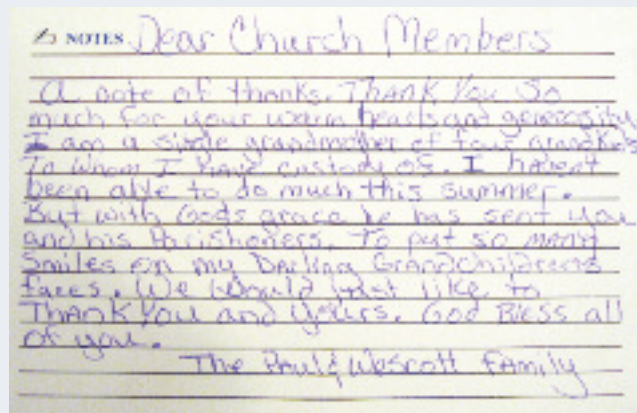 NOTES Dear Church Members
A note of thanks. Thank You So
much for your warm hearts and generosity
I am a single grandmother of four grandkids
To whom I have custody of. I havent
been able to do much this summer.
But with Gods grace he has sent you
and his Parishoners. To put so many
Smiles on my Darling Grandchildrens
faces. We would just like to
Thank You and yours. God Bless all
of you.
The Paul & Wescott Family